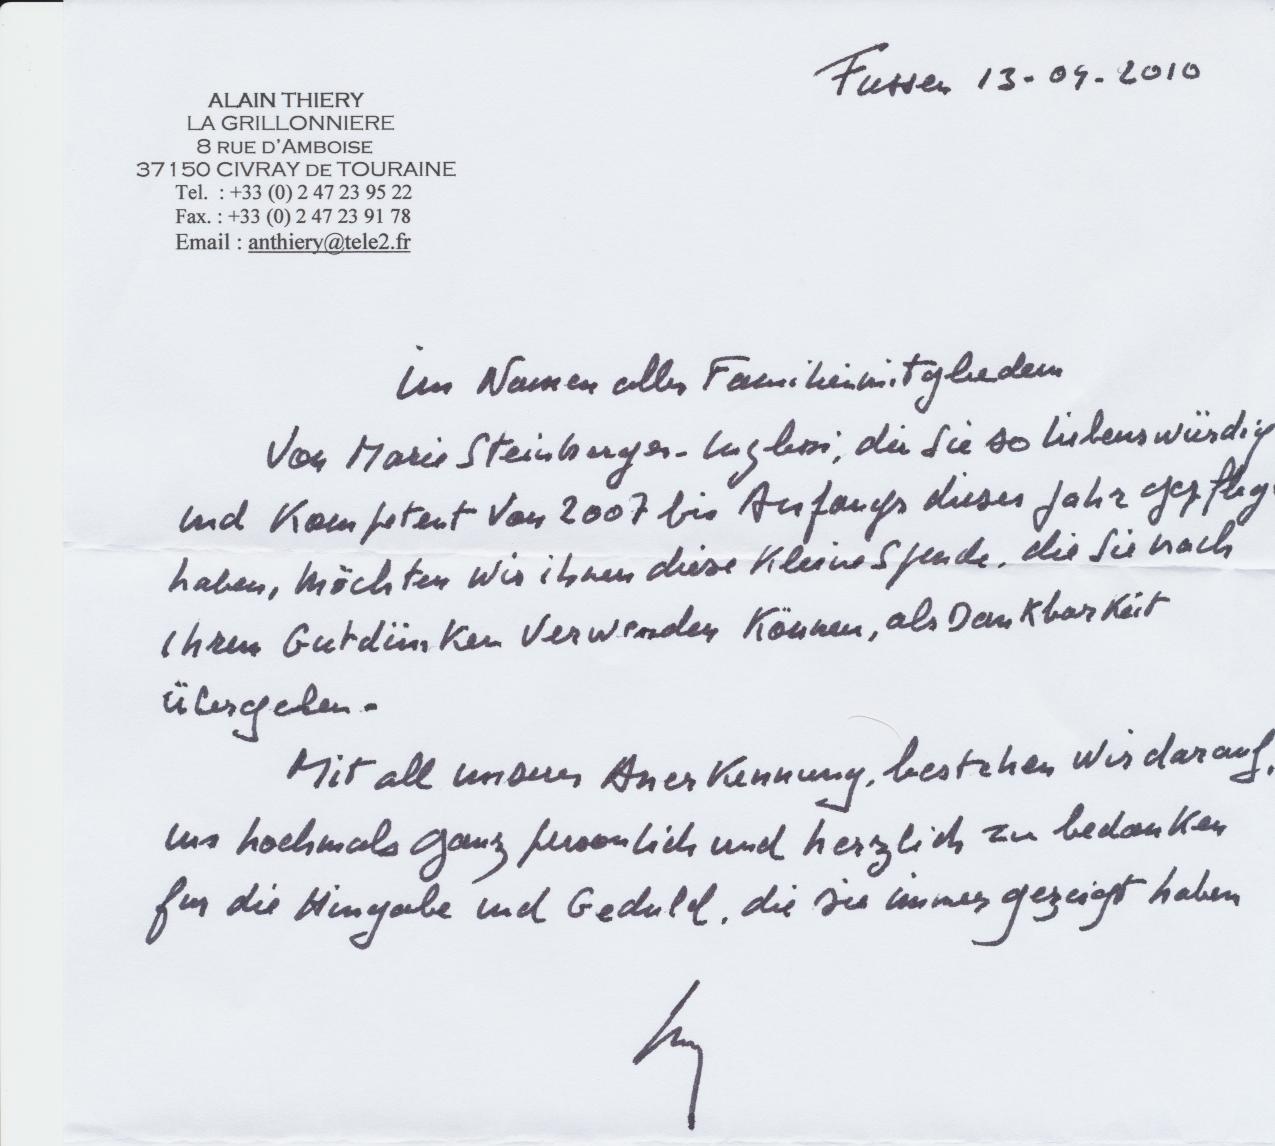 Fussen 13-04-2010
ALAIN THIERY
LA GRILLONNIERE
8 RUE D'AMBOISE
37150 CIVRAY DE TOURAINE
Tel. : +33 (0) 2 47 23 95 22
Fax. : +33 (0) 2 47 23 91 78
Email : anthiery@tele2.fr
im Namen aller Familienmitgliedern
Von Marie Steinberger- die Sie so liebenswürdig
und Kompetent Von 2007 bis Anfangs dieses Jahr gepfleg
haben, möchten wir ihnen diese Kleine Spende, die Sie nach
ihrem Gutdünken Verwenden Können, als Dankbarkeit
übergeben-
Mit all unserer Anerkennung, bestehen wir darauf,
uns nochmals ganz persönlich und herzlich zu bedanken
für die Hingabe und Geduld, die sie immer gezeigt haben